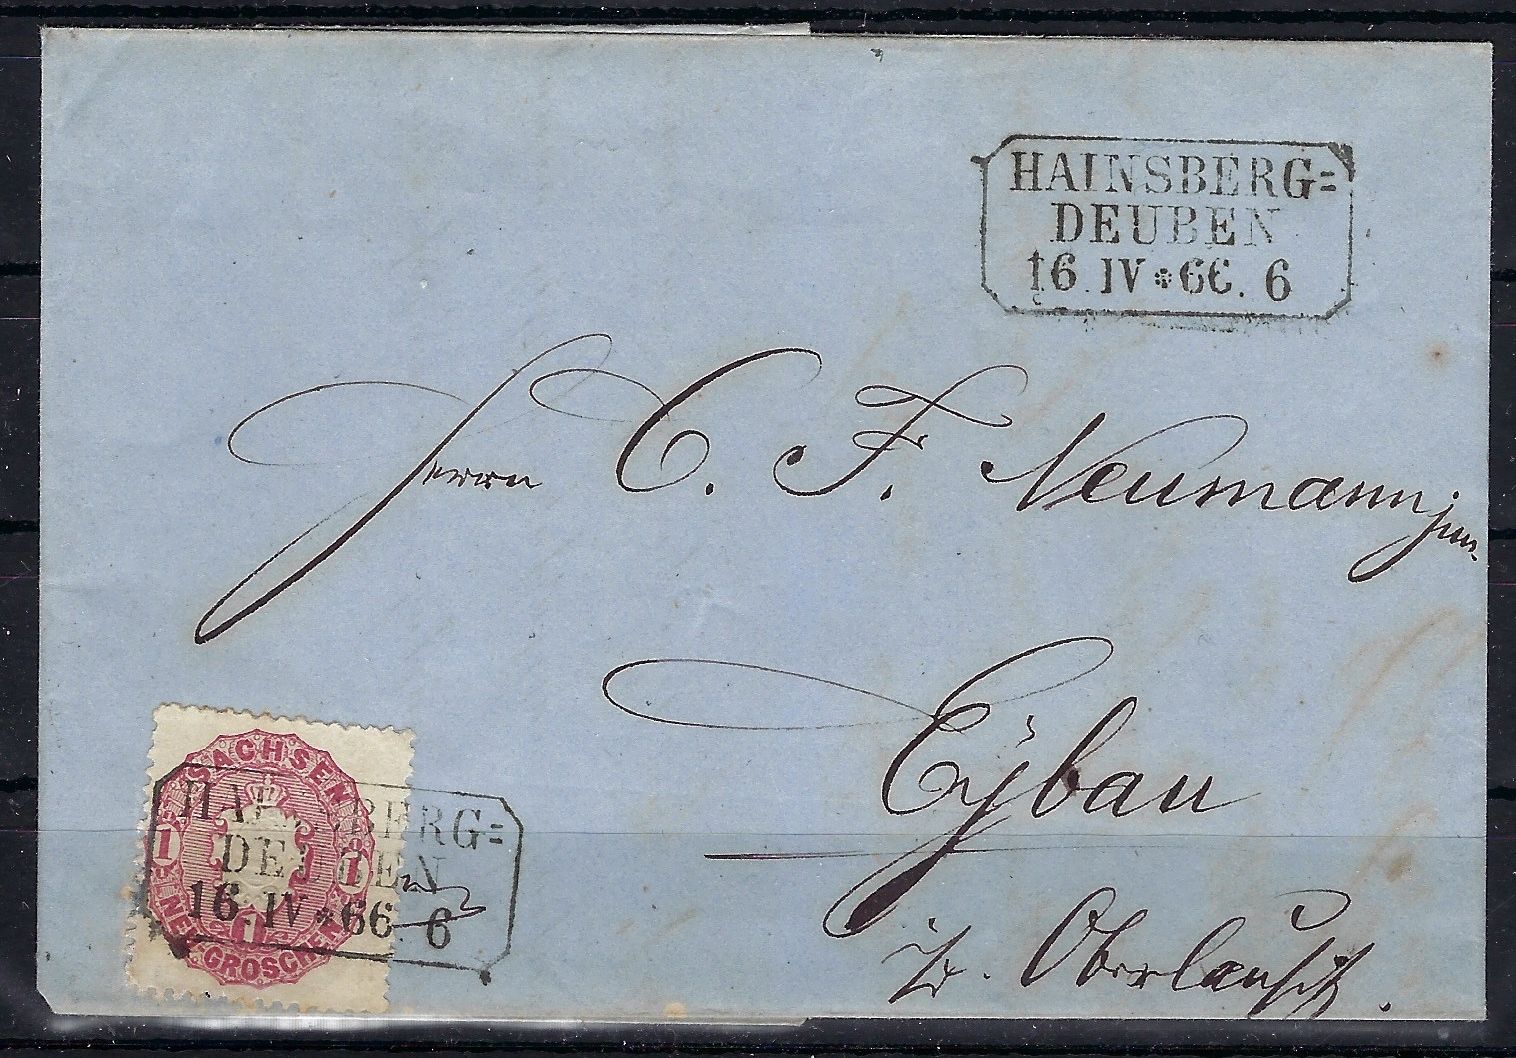 HAINSBERG=
DEUBEN
16 IV * 66. 6
Herrn C. F. Neumann jun.
Eybau
i/d. Oberlausitz.
SACHSEN
1 1
NEU-GROSCHEN
1
HAINSBERG=
DEUBEN
16 IV * 66. 6